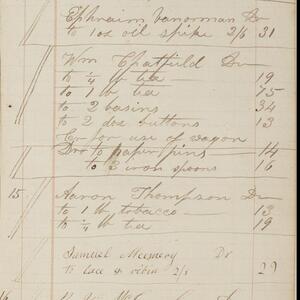 Ephraim Vanorman Dr
to 1 oz oil spike 2/6 31
Wm Chatfield Dr
to 1/4 lb tea 19
to 1 lb tea 75
to 2 basins 34
to 2 doz buttons 13
Cr for use of wagon
Dr to paper pins 14
to 3 iron spoons 16
15 Aaron Thompson Dr
to 1 lb tobacco 13
to 1/4 lb tea 19
Samuel Dr
to lace & 2/3 29
16